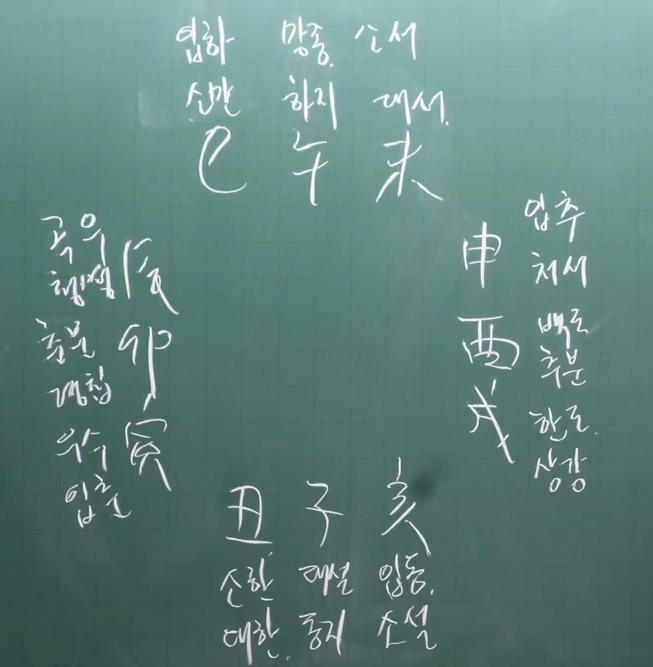 입하 망종. 소서
소만 하지 대서.
巳 午 未
곡우
청명 辰
춘분 卯
경칩
우수 寅
입춘
申 입추
처서
酉 백로
추분
戌 한로.
상강
丑 子 亥
소한 대설 입동.
대한. 동지 소설